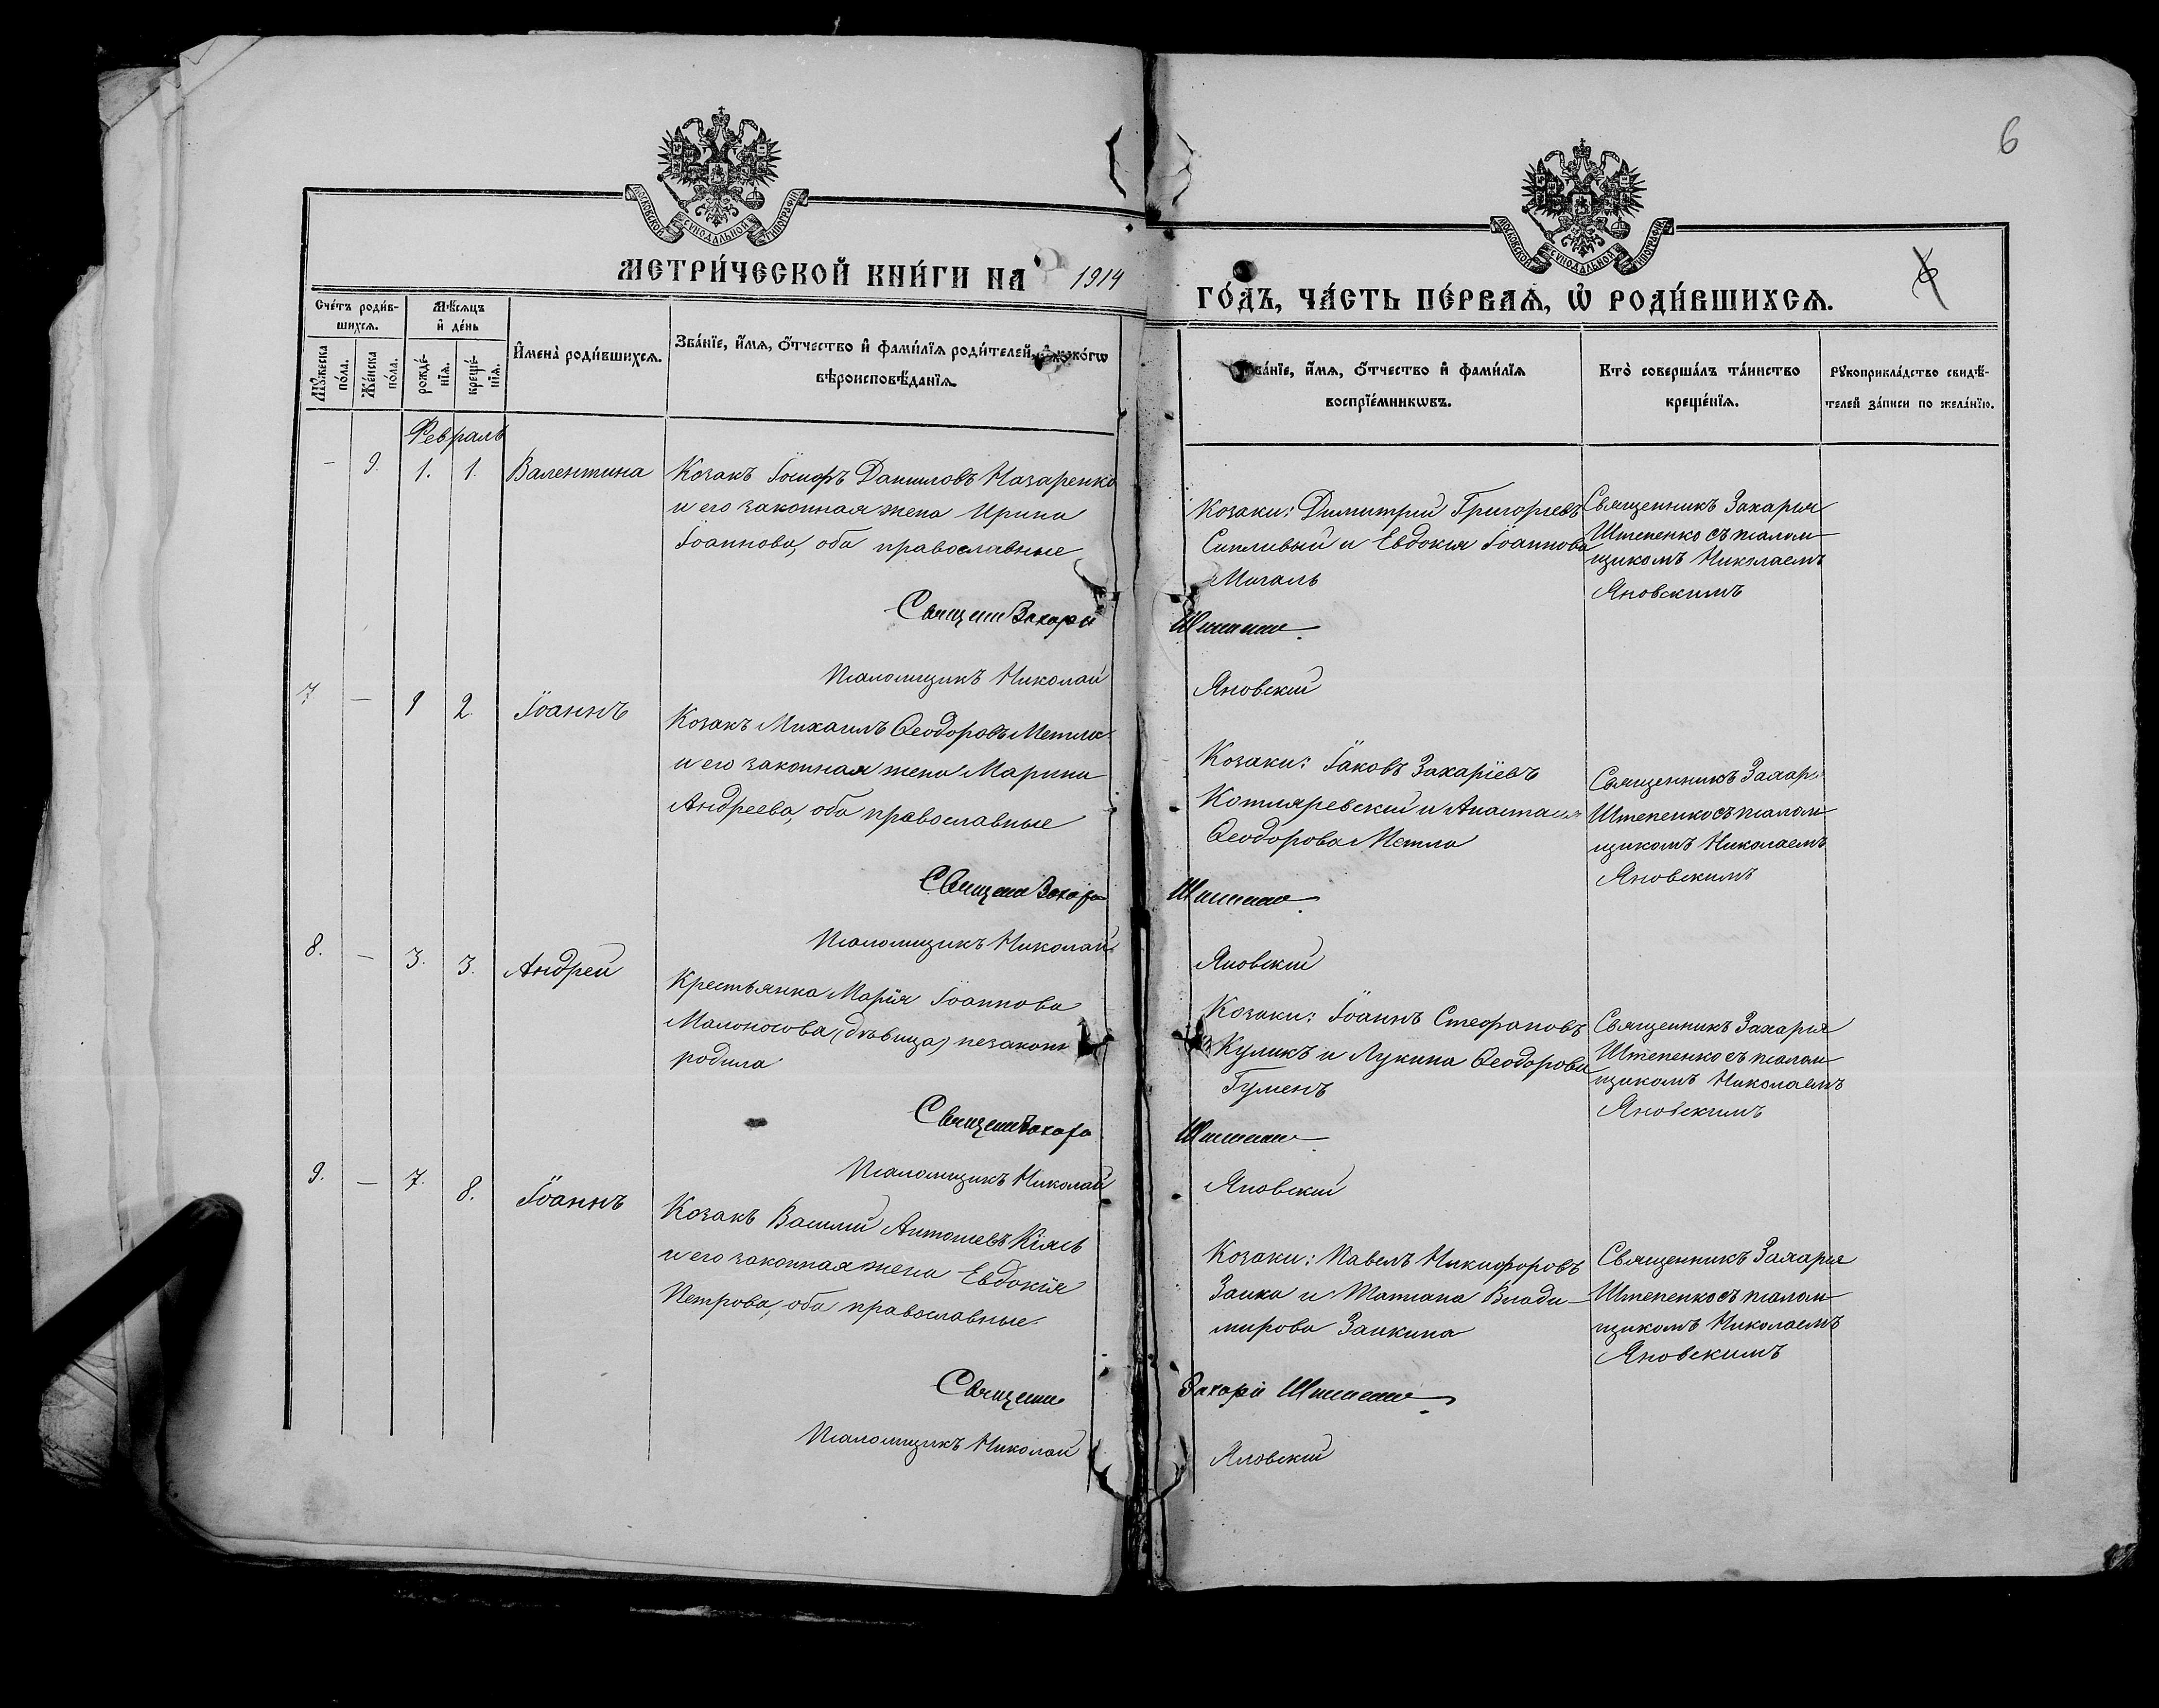 6
МОСКОВСКОЙ СѴНОДАЛЬНОЙ ТИПОГРАФІИ
МОСКОВСКОЙ СѴНОДАЛЬНОЙ ТИПОГРАФІИ
МЕТРИ́ЧЕСКОЙ КНИ́ГИ НА 1914
ГО́ДЪ, ЧА́СТЬ ПЕ́РВАѦ, Ѡ҆ РОДИ́ВШИХСѦ.
Сче́тъ роди́в-
шихсѧ.
Мꙋжеска
по́ла.
Же́нска
по́ла.
Мѣ́сѧцъ
и҆ де́нь
рожде́-
нїѧ.
креще́-
нїѧ.
И҆мена̀ роди́вшихсѧ.
Зва́нїе, и҆́мѧ, ѻ҆́тчество и҆ фами́лїѧ роди́телей, и҆ како́гѡ
вѣроисповѣ́данїѧ.
зва́нїе, и҆́мѧ, ѻ҆́тчество и҆ фами́лїѧ
воспрїе́мникѡвъ.
Кто̀ соверша́лъ та́инство
креще́нїѧ.
Рꙋкоприкла́дство свидѣ́-
телей за́писи по жела́нїю.
Февраль
- 9. 1. 1. Валентина
Козакъ Іосифъ Даниловъ Назаренко
и его законная жена Ирина
Іоаннова, оба православные
Козаки: Димитрий Григорьевъ
Сипливый и Евдокія Іоаннова
Мигаль
Священникъ Захарія
Штепенко съ псалом-
щикомъ Николаемъ
Яновскимъ
Священ Захарій Штепенко.
Псаломщикъ Николай Яновскій
7. — 1 2. Іоаннъ
Козакъ Михаилъ Ѳеодоровъ Метла
и его законная жена Марина
Андреева, оба православные
Козаки: Іаковъ Захаріевъ
Котляревский и Анастасія
Ѳеодорова Метла
Священникъ Захарія
Штепенко съ псалом-
щикомъ Николаемъ
Яновскимъ
Священ Захарій Штепенко.
Псаломщикъ Николай Яновскій
8. — 3. 3. Андрей
Крестьянка Марія Іоаннова
Малоносова (дѣвица) незаконн
родила
Козаки: Іоаннъ Стефановъ
Куликъ и Лукина Ѳеодорова
Гуменъ
Священникъ Захарія
Штепенко съ псалом-
щикомъ Николаемъ
Яновскимъ
Священ Захарій Штепенко.
Псаломщикъ Николай Яновскій
9. — 7. 8. Іоаннъ
Козакъ Василий Антоніевъ Кіясь
и его законная жена Евдокія
Петрова, оба православные.
Козаки: Павелъ Никифоровъ
Заика и Татіана Влади-
мирова Заикина
Священникъ Захарія
Штепенко съ псалом-
щикомъ Николаемъ
Яновскимъ
Священ Захарій Штепенко.
Псаломщикъ Николай Яновскій